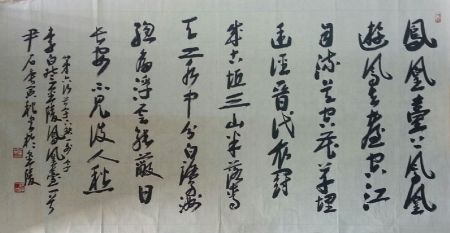 鳳凰臺上鳳凰
遊鳳去臺空江
自流吳宮花草埋
幽徑晉代衣冠
成古坵三山半落青
天二水中分白鷺洲
總為浮雲能蔽日
長安不見使人愁
李白登金陵鳳凰臺一首
尹石庚寅秋書於金陵